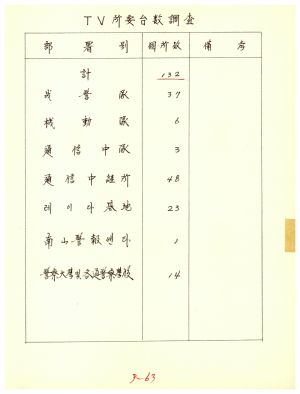 TV所要台数調査
部署別 個所数 備考
計 132
戎警隊 37
機動隊 6
通信中隊 3
通信中継所 48
레이다基地 23
南山警報센타 1
警察大學및交通警察學校 14
9-63